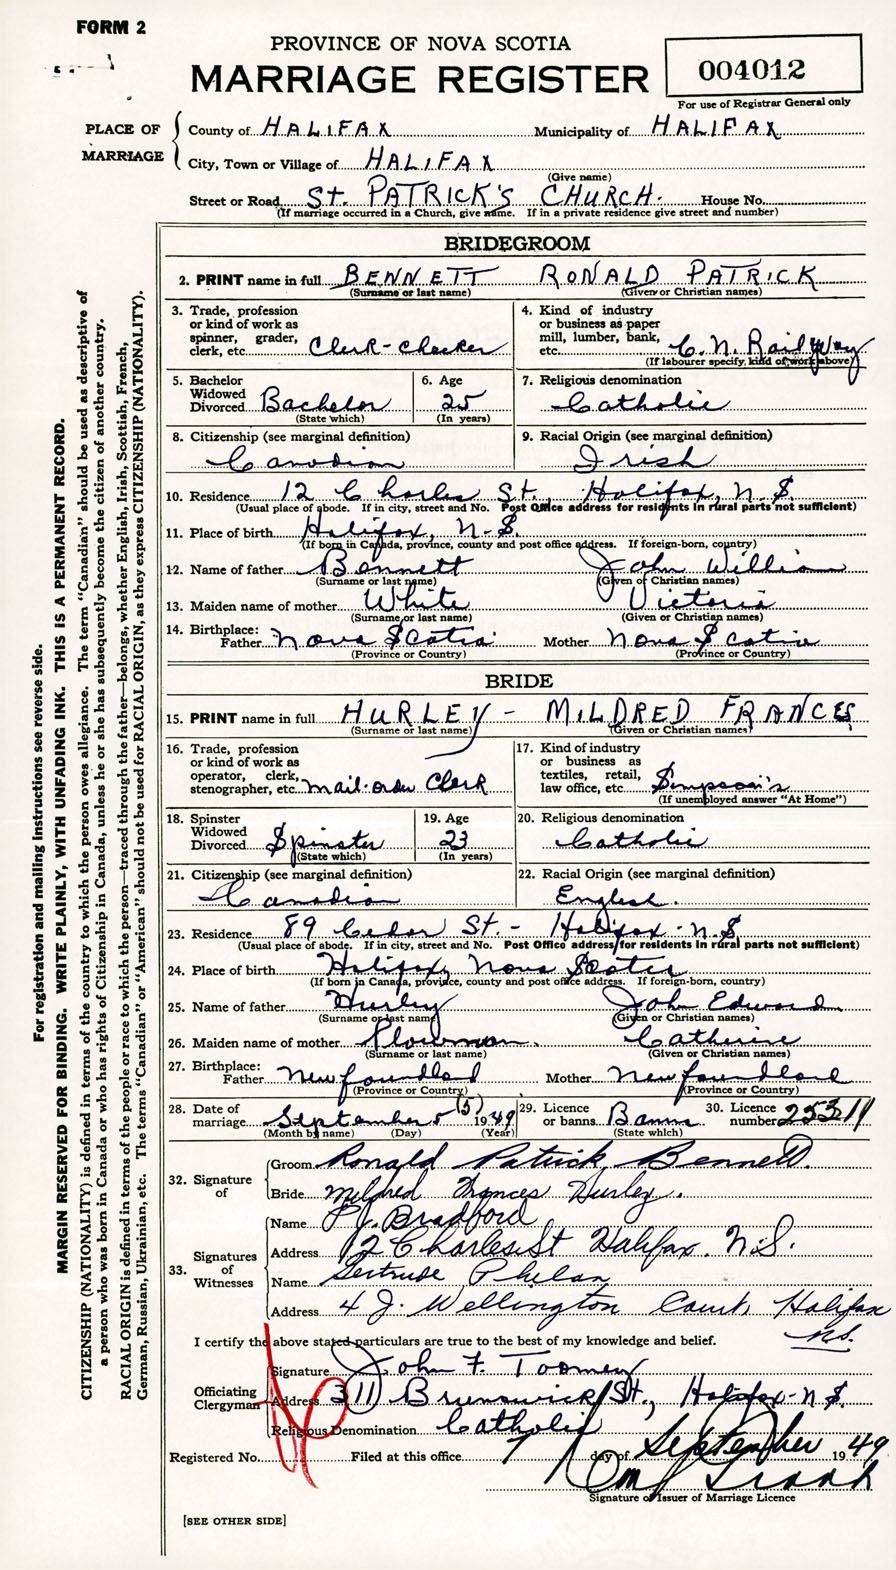 FORM 2
PROVINCE OF NOVA SCOTIA
MARRIAGE REGISTER
004012
For use of Registrar General only
PLACE OF MARRIAGE
County of HALIFAX Municipality of HALIFAX
City, Town or Village of HALIFAX
(Give name)
Street or Road ST. PATRICK'S CHURCH. House No.
(If marriage occurred in a Church, give name. If in a private residence give street and number)
BRIDEGROOM
2. PRINT name in full BENNETT RONALD PATRICK
(Surname or last name) (Given or Christian names)
3. Trade, profession or kind of work as spinner, grader, clerk, etc. Clerk-checker
4. Kind of industry or business as paper mill, lumber, bank, etc. C. N. Railway
(If labourer specify kind of work above)
5. Bachelor Widowed Divorced Bachelor
(State which)
6. Age 25
(In years)
7. Religious denomination
Catholic
8. Citizenship (see marginal definition)
Canadian
9. Racial Origin (see marginal definition)
Irish
10. Residence 12 Charles St. Halifax, N.S.
(Usual place of abode. If in city, street and No. Post Office address for residents in rural parts not sufficient)
11. Place of birth Halifax, N.S.
(If born in Canada, province, county and post office address. If foreign-born, country)
12. Name of father Bennett John William
(Surname or last name) (Given or Christian names)
13. Maiden name of mother White Victoria
(Surname or last name) (Given or Christian names)
14. Birthplace: Father Nova Scotia Mother Nova Scotia
(Province or Country) (Province or Country)
BRIDE
15. PRINT name in full HURLEY - MILDRED FRANCES
(Surname or last name) (Given or Christian names)
16. Trade, profession or kind of work as operator, clerk, stenographer, etc. Mail-order Clerk
17. Kind of industry or business as textiles, retail, law office, etc. Simpson's
(If unemployed answer "At Home")
18. Spinster Widowed Divorced Spinster
(State which)
19. Age 23
(In years)
20. Religious denomination
Catholic
21. Citizenship (see marginal definition)
Canadian
22. Racial Origin (see marginal definition)
English.
23. Residence 89 Cedar St. - Halifax - N.S
(Usual place of abode. If in city, street and No. Post Office address for residents in rural parts not sufficient)
24. Place of birth Halifax, Nova Scotia
(If born in Canada, province, county and post office address. If foreign-born, country)
25. Name of father Hurley John Edward
(Surname or last name) (Given or Christian names)
26. Maiden name of mother Plowman. Catherine
(Surname or last name) (Given or Christian names)
27. Birthplace: Father Newfoundland Mother Newfoundland
(Province or Country) (Province or Country)
28. Date of marriage September 5 (5) 1949
(Month by name) (Day) (Year)
29. Licence or banns Banns
(State which)
30. Licence number 25311
32. Signature of
Groom Ronald Patrick Bennett.
Bride Mildred Frances Hurley.
33. Signatures of Witnesses
Name P.J. Bradford
Address 12 Charles St Halifax. N.S.
Name Gertrude Phelan
Address 4 J. Wellington Court, Halifax
N.S.
I certify the above stated particulars are true to the best of my knowledge and belief.
Officiating Clergyman
Signature John F. Toomey
Address 311 Brunswick St., Halifax - N.S.
Religious Denomination Catholic
Registered No. Filed at this office 7 day of September 1949
Signature of Issuer of Marriage Licence
[SEE OTHER SIDE]
For registration and mailing instructions see reverse side.
MARGIN RESERVED FOR BINDING. WRITE PLAINLY, WITH UNFADING INK. THIS IS A PERMANENT RECORD.
CITIZENSHIP (NATIONALITY) is defined in terms of the country to which the person owes allegiance. The term "Canadian" should be used as descriptive of
a person who was born in Canada or who has rights of Citizenship in Canada, unless he or she has subsequently become the citizen of another country.
RACIAL ORIGIN is defined in terms of the people or race to which the person—traced through the father—belongs, whether English, Irish, Scottish, French,
German, Russian, Ukrainian, etc. The terms "Canadian" or "American" should not be used for RACIAL ORIGIN, as they express CITIZENSHIP (NATIONALITY).